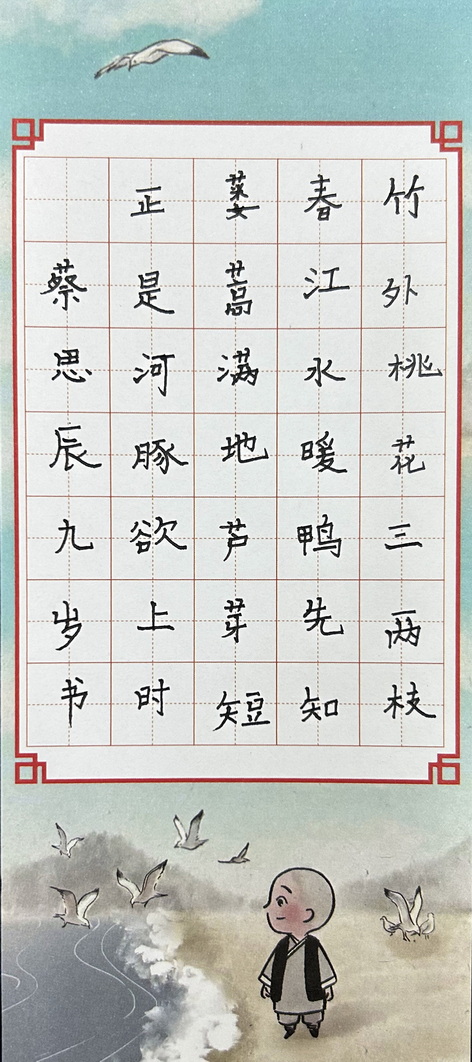 竹外桃花三两枝
春江水暖鸭先知
蒌蒿满地芦芽短
正是河豚欲上时
蔡思辰九岁书